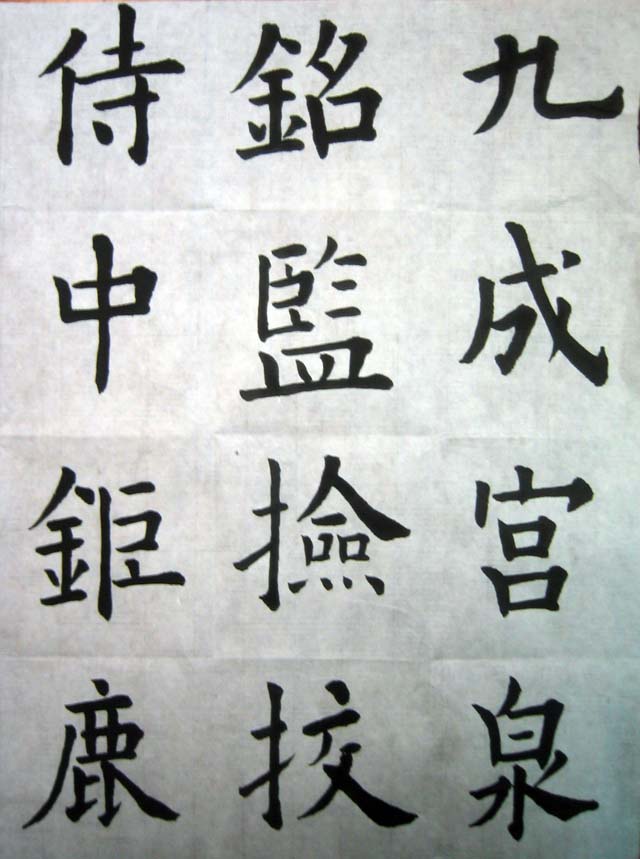 九成宮泉
銘監撿挍
侍中鉅鹿